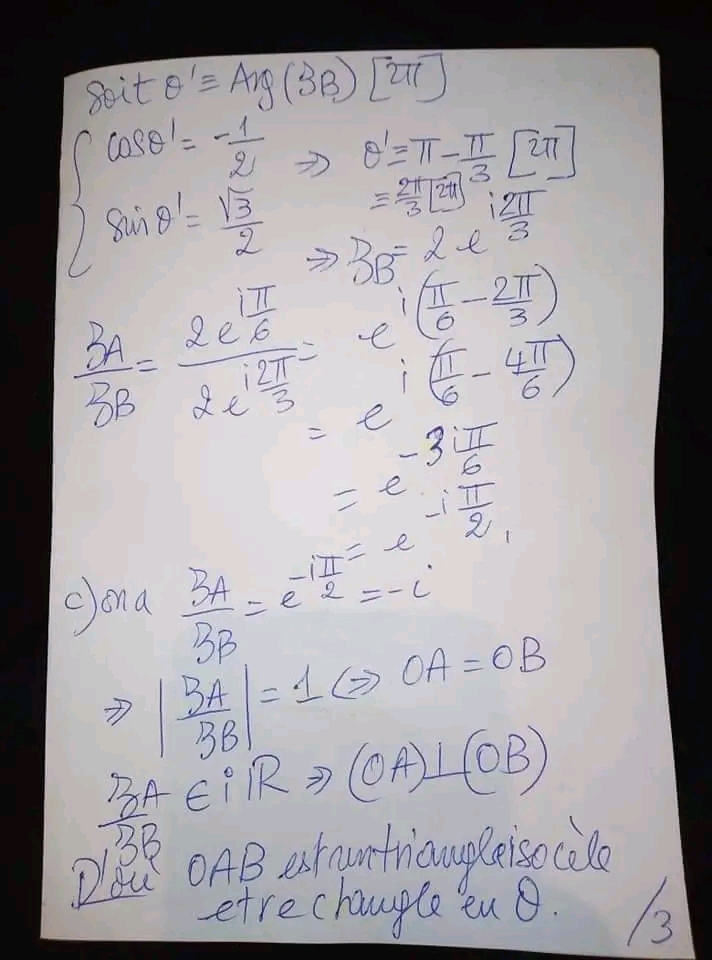 Soit θ' ≡ Arg(ZB) [2π]
{ cosθ' = -1/2 ⇒ θ' ≡ π - π/3 [2π]
sinθ' = √3/2 ≡ 2π/3 [2π]
⇒ ZB = 2e^{i2π/3}
ZA/ZB = 2e^{iπ/6}/2e^{i2π/3} = e^{i(π/6 - 2π/3)}
= e^{i(π/6 - 4π/6)}
= e^{-3iπ/6}
= e^{-iπ/2},
c) on a ZA/ZB = e^{-iπ/2} = -i
⇒ |ZA/ZB| = 1 ⇔ OA = OB
ZA/ZB ∈ iIR ⇒ (OA)⊥(OB)
D'où OAB est un triangle isocèle
et rectangle en O.
/3